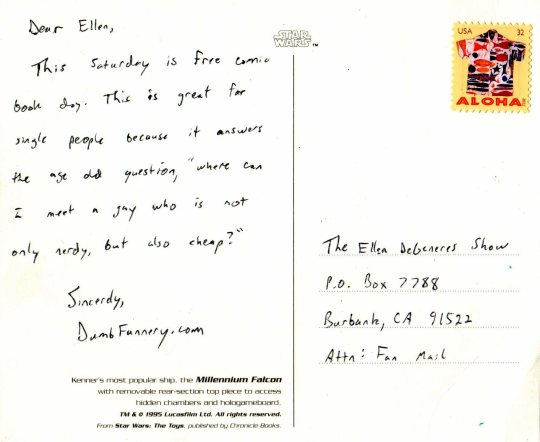 Dear Ellen,
This Saturday is Free comic
book day. This is great for
single people because it answers
the age old question, "where can
I meet a guy who is not
only nerdy, but also cheap?"
Sincerely,
DumbFunnery.com
STAR
WARS™
USA 32
ALOHA
The Ellen DeGeneres Show
P.O. Box 7788
Burbank, CA 91522
Attn: Fan Mail
Kenner's most popular ship, the Millennium Falcon
with removable rear-section top piece to access
hidden chambers and hologameboard.
TM & © 1995 Lucasfilm Ltd. All rights reserved.
From Star Wars: The Toys, published by Chronicle Books.